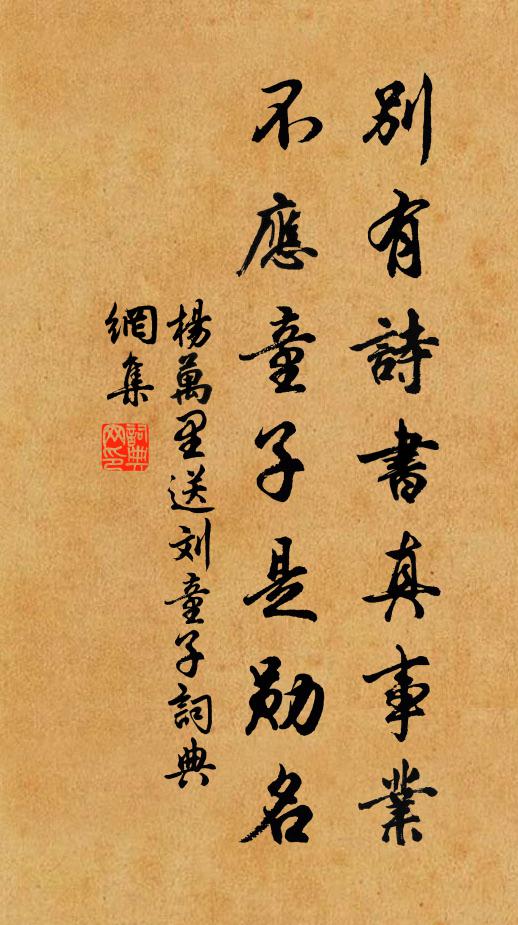 別有詩書真事業
不應童子是勛名
楊萬里送刘童子詞典
網集
詞典網印